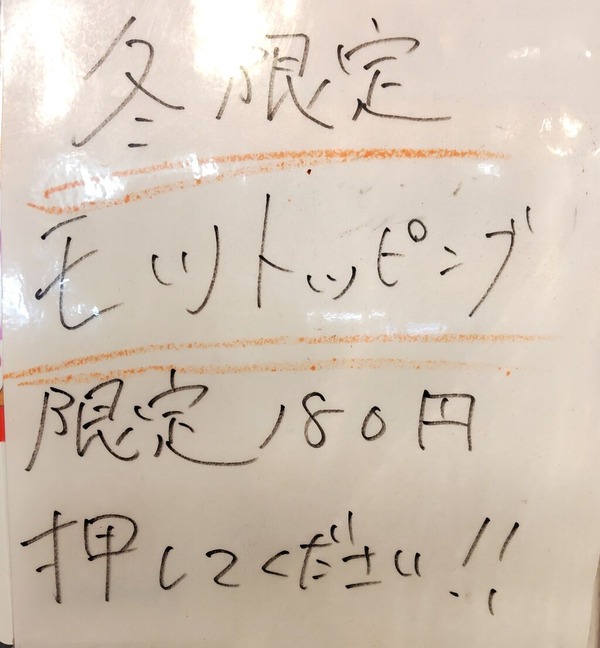 冬限定
モツトッピング
限定180円
押してください!!